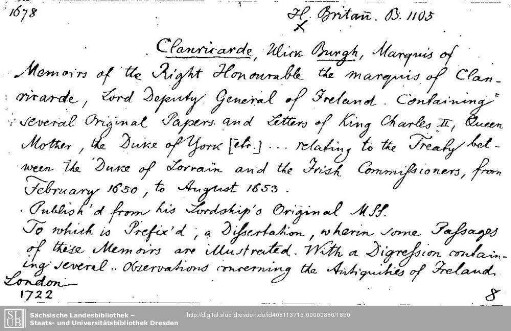 1678
H. Britañ. B. 1105
x
Clanricarde, Ulick Burgh, Marquis of
Memoirs of the Right Honourable the marquis of Clan-
ricarde, Lord Deputy General of Ireland. Containing
several Original Papers and Letters of King Charles II, Queen
Mother, the Duke of York [etc.] ... relating to the Treaty bet-
ween the Duke of Lorrain and the Irish Commissioners, from
February 1650, to August 1653.
Publish'd from his Lordship's Original MSS.
To which is Prefix'd, a Dissertation, wherin some Passages
of these Memoirs are illustrated. With a Digression contain-
ing several Observations concerning the Antiquities of Ireland.
London
1722
8
SLUB
Sächsische Landesbibliothek –
Staats- und Universitätsbibliothek Dresden